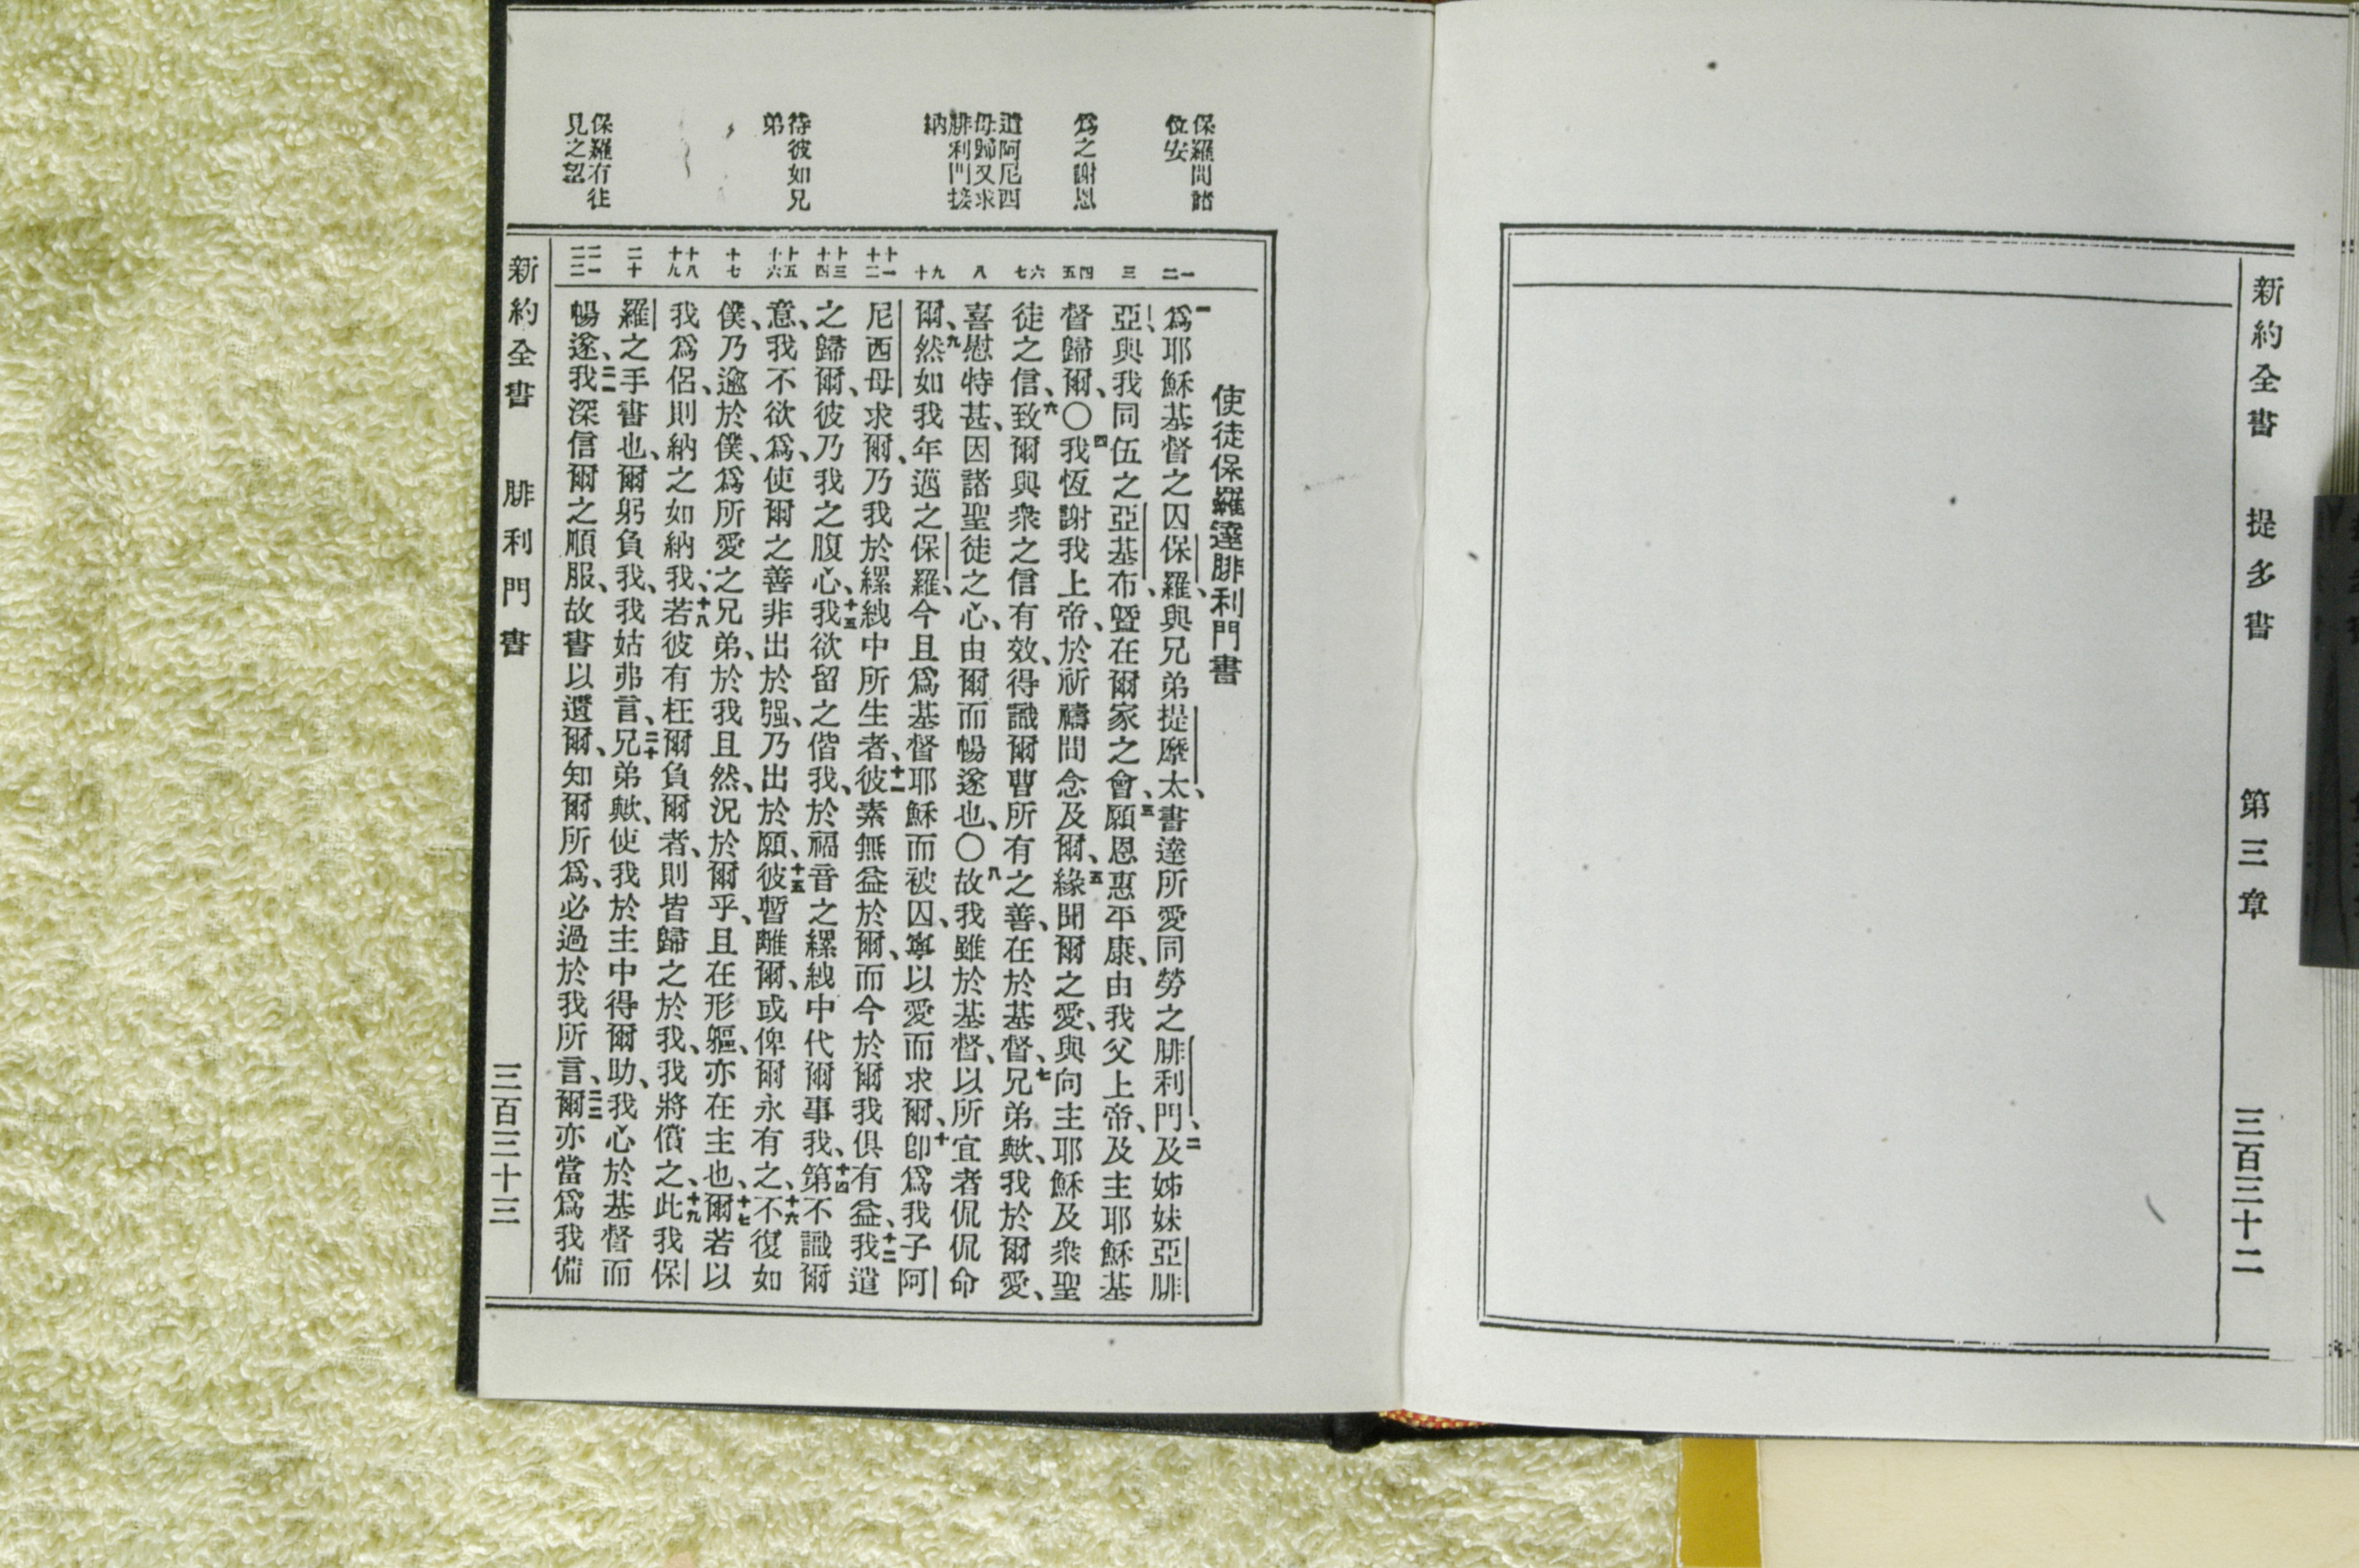 新約全書 提多書 第三章 三百三十二
保羅問諸
位安
爲之謝恩
遣阿尼西
母歸又求
腓利門接
納
待彼如兄
弟
保羅有往
見之望
一
二
三
四
五
六
七
八
九
十
十一
十二
十三
十四
十五
十六
十七
十八
十九
二十
二一
二二
使徒保羅達腓利門書
一爲耶穌基督之囚保羅、與兄弟提摩太、書達所愛同勞之腓利門、二及姊妹亞腓
亞、與我同伍之亞基布、曁在爾家之會、三願恩惠平康、由我父上帝、及主耶穌基
督歸爾、〇四我恆謝我上帝、於祈禱間念及爾、五緣聞爾之愛、與向主耶穌及衆聖
徒之信、六致爾與衆之信有效、得識爾曹所有之善、在於基督、七兄弟歟、我於爾愛、
喜慰特甚、因諸聖徒之心、由爾而暢遂也、〇八故我雖於基督、以所宜者侃侃命
爾、九然如我年邁之保羅、今且爲基督耶穌而被囚、寧以愛而求爾、十卽爲我子阿
尼西母求爾、乃我於縲絏中所生者、十一彼素無益於爾、而今於爾我俱有益、十二我遣
之歸爾、彼乃我之腹心、十五我欲留之偕我、於福音之縲絏中代爾事我、十四第不識爾
意、我不欲爲、使爾之善非出於强、乃出於願、十五彼暫離爾、或俾爾永有之、十六不復如
僕、乃逾於僕、爲所愛之兄弟、於我且然、況於爾乎、且在形軀、亦在主也、十七爾若以
我爲侶、則納之如納我、十八若彼有枉爾負爾者、則皆歸之於我、我將償之、十九此我保
羅之手書也、爾躬負我、我姑弗言、二十兄弟歟、使我於主中得爾助、我心於基督而
暢遂、二一我深信爾之順服、故書以遺爾、知爾所爲、必過於我所言、二二爾亦當爲我備
新約全書 腓利門書 三百三十三